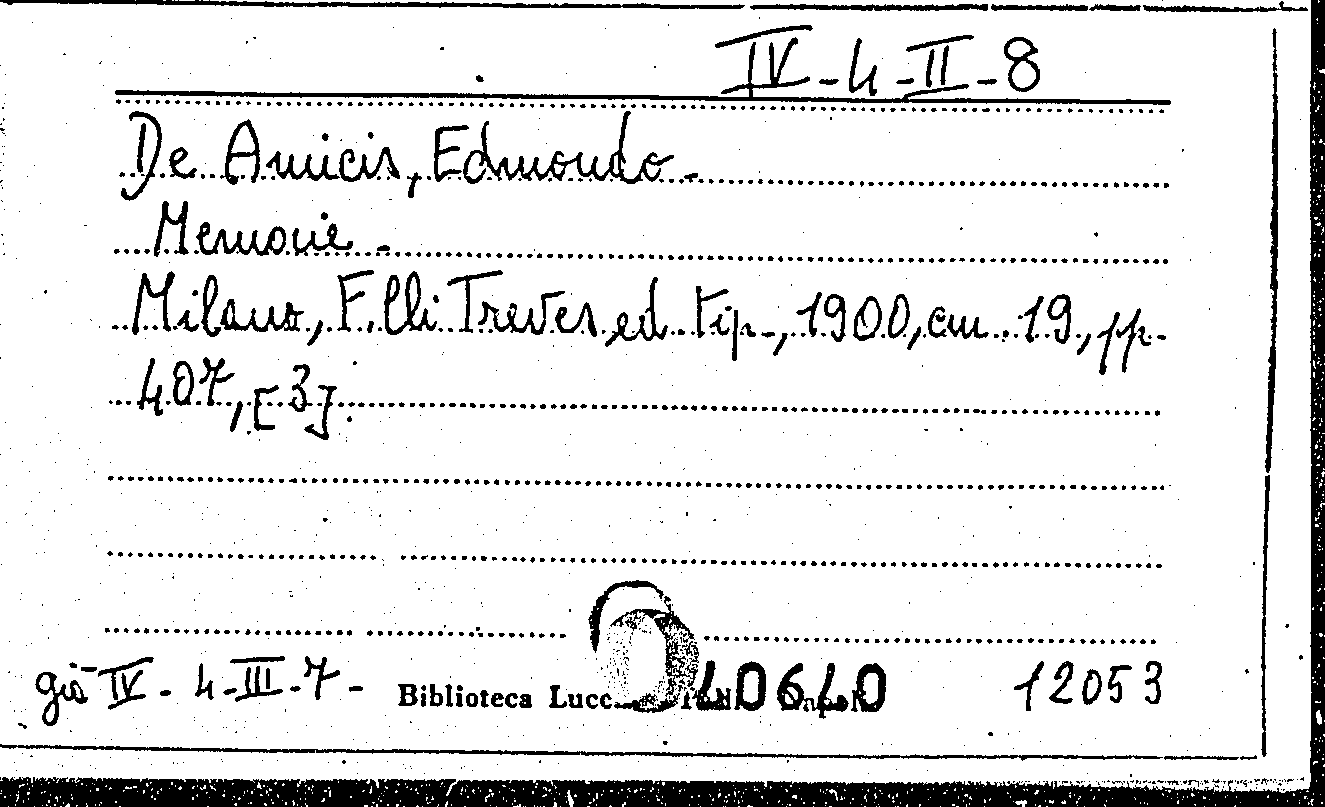 IV-4-II-8
De Amicis, Edmondo.-
Memorie.-
Milano, F.lli Treves, ed. tip., 1900, cm. 19, pp.
407, [3].
già IV-4-III-7- Biblioteca 40640 12053